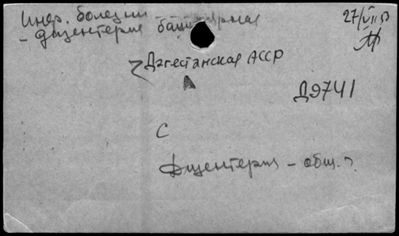 Инф. болезни
- дизентерия бациллярная
27/VII 53
Дагестанская АССР
Д9741
С
Дизентерия - общ. п.